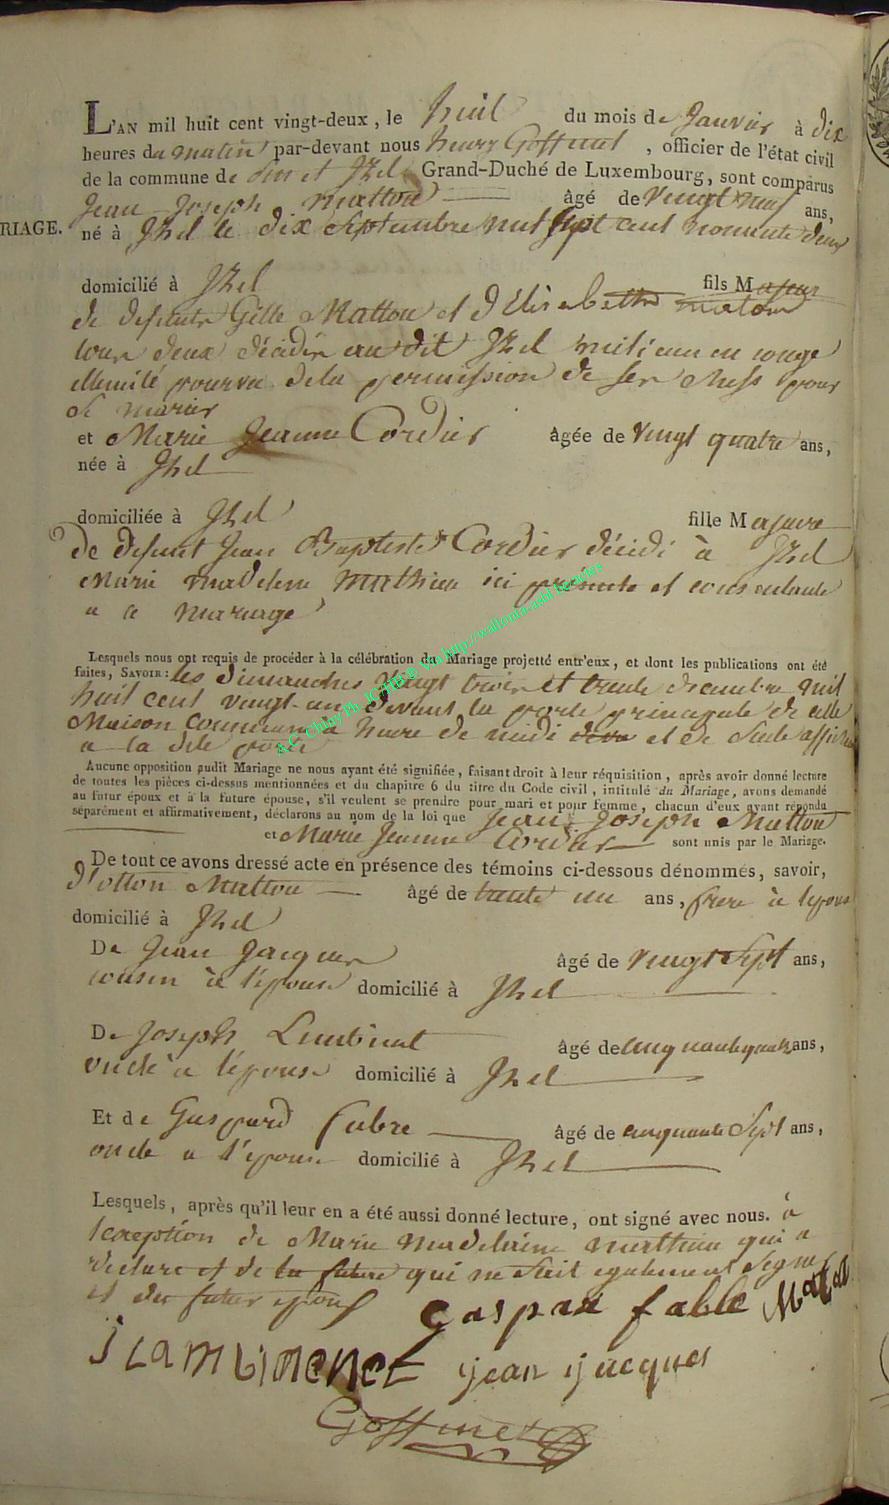 L'AN mil huit cent vingt-deux, le huit du mois de Janvier à dix
heures du matin par-devant nous henry Goffinet, officier de l'état civil
de la commune de Grand-Duché de Luxembourg, sont comparus
Jean Joseph Mattou âgé de vingt neuf ans,
RIAGE.
né à Jzel le dix Septembre mil Sept cent nonante deux
domicilié à Jzel fils Majeur
de defunts Gille Mattou et d'Elisabethe
tous deux décédés au dit Jzel milicien en congé
illimité pourvu de la permission de ses chefs pour
se marier
et Marie Jeanne Cordier âgée de vingt quatre ans,
née à Jzel
domiciliée à Jzel fille Majeure
De defunt Jean Baptiste Cordier décédé à Jzel
Marie madelene mathieu ici présente et consentante
a ce mariage
Lesquels nous ont requis de procéder à la célébration du Mariage projetté entr'eux, et dont les publications ont été
faites, SAVOIR: les dimanches vingt trois et trente decembre mil
huit cent vingt-un devant la porte principale de cette
Maison commune à heure de midi et de suite affichés
a la dite porte
A.C. Chiny Ph. JCHH® Via http://wallonia-asbl.be/actes
Aucune opposition audit Mariage ne nous ayant été signifiée, faisant droit à leur réquisition, après avoir donné lecture
de toutes les pièces ci-dessus mentionnées et du chapitre 6 du titre du Code civil, intitulé du Mariage, avons demandé
au futur époux et à la future épouse, s'il veulent se prendre pour mari et pour femme, chacun d'eux ayant répondu
séparément et affirmativement, déclarons au nom de la loi que Jean Joseph Mattou
et Marie Jeanne Cordier sont unis par le Mariage.
De tout ce avons dressé acte en présence des témoins ci-dessous dénommés, savoir,
Mattou âgé de trente un ans, frere à lepoux
domicilié à Jzel
De Jean Jacques âgé de vingt Sept ans,
cousin à l'épouse domicilié à Jzel
De Joseph âgé de cinquante quatre ans,
oncle à l'épouse domicilié à Jzel
Et de Gaspard fabre âgé de cinquante Sept ans,
oncle a l'épouse domicilié à Jzel
Lesquels, après qu'il leur en a été aussi donné lecture, ont signé avec nous. à
lexception de Marie madeleine mathieu qui a
declaré et de la future qui ne Sait egalement Signer
et du futur epoux
Gaspar fable
jean jacques
Goffinet